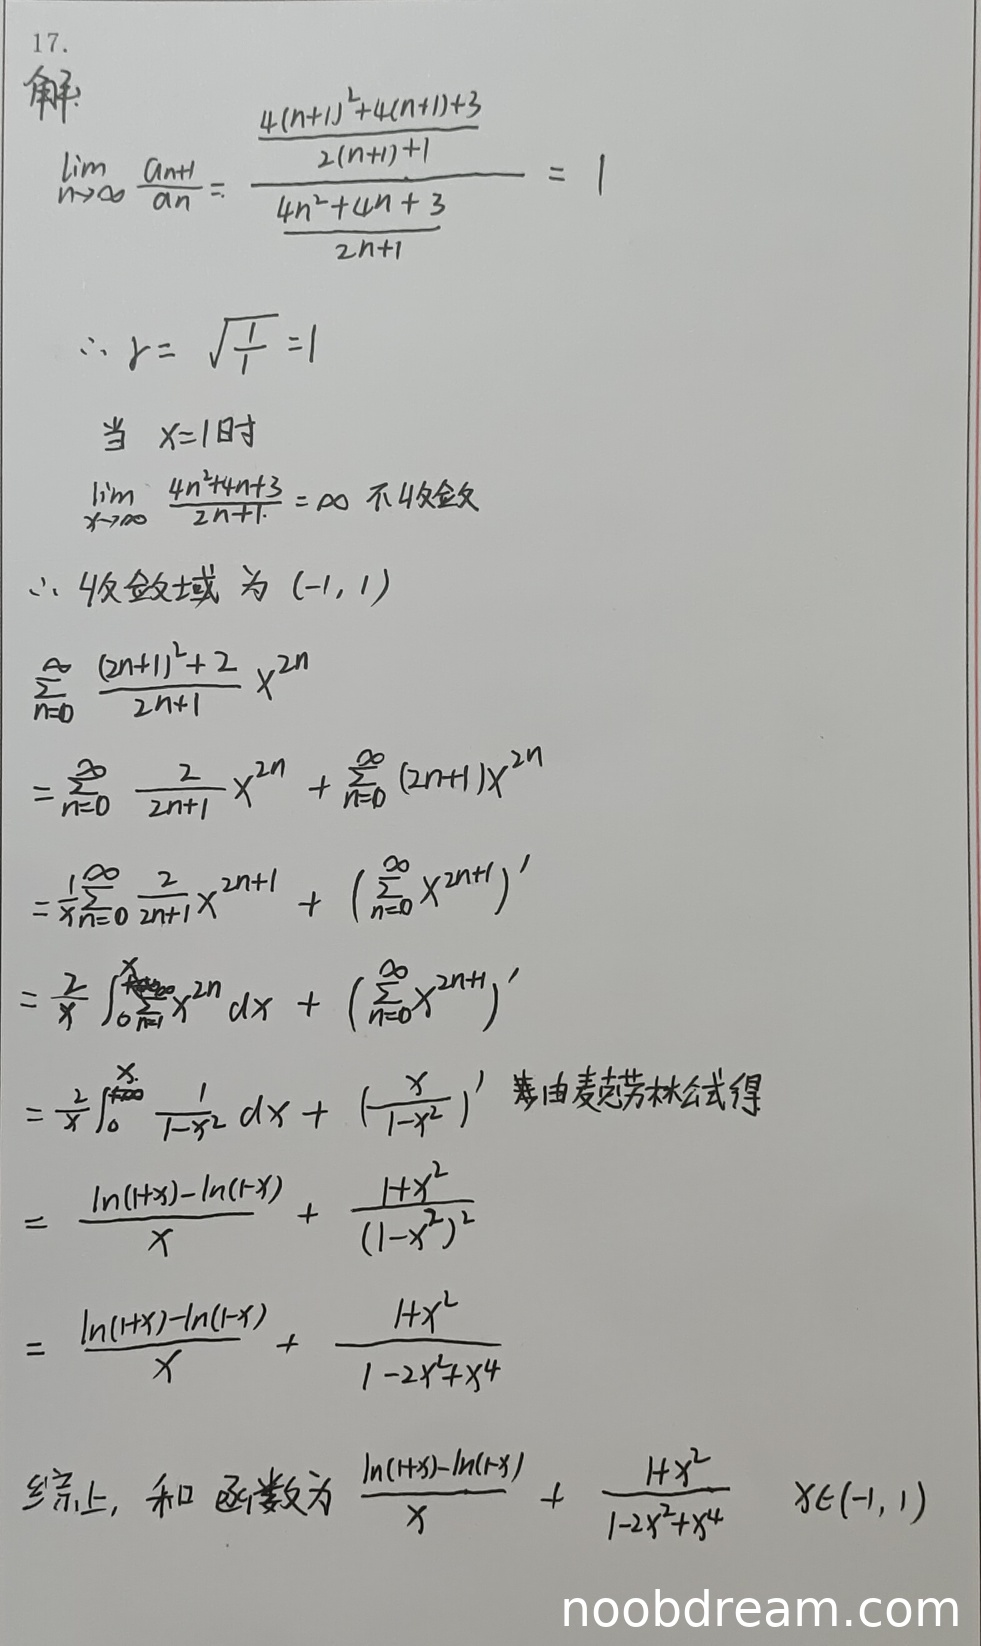 17.
解:
lim n→∞ a_{n+1}/a_n = ((4(n+1)²+4(n+1)+3)/(2(n+1)+1))/((4n²+4n+3)/(2n+1)) = 1
∴ r = √(1/1) = 1
当 x=1时
lim x→∞ (4n²+4n+3)/(2n+1) = ∞ 不收敛
∴ 收敛域 为 (-1, 1)
∑_{n=0}^{∞} ((2n+1)²+2)/(2n+1) x^{2n}
= ∑_{n=0}^{∞} 2/(2n+1) x^{2n} + ∑_{n=0}^{∞} (2n+1)x^{2n}
= 1/x ∑_{n=0}^{∞} 2/(2n+1) x^{2n+1} + (∑_{n=0}^{∞} x^{2n+1})′
= 2/x ∫_0^x ∑_{n=1}^{∞} x^{2n} dx + (∑_{n=0}^{∞} x^{2n+1})′
= 2/x ∫_0^x 1/(1-x²) dx + (x/(1-x²))′ 由麦克劳林公式得
= (ln(1+x)-ln(1-x))/x + (1+x²)/(1-x²)²
= (ln(1+x)-ln(1-x))/x + (1+x²)/(1-2x²+x⁴)
综上, 和函数为 (ln(1+x)-ln(1-x))/x + (1+x²)/(1-2x²+x⁴) x∈(-1, 1)
noobdream.com